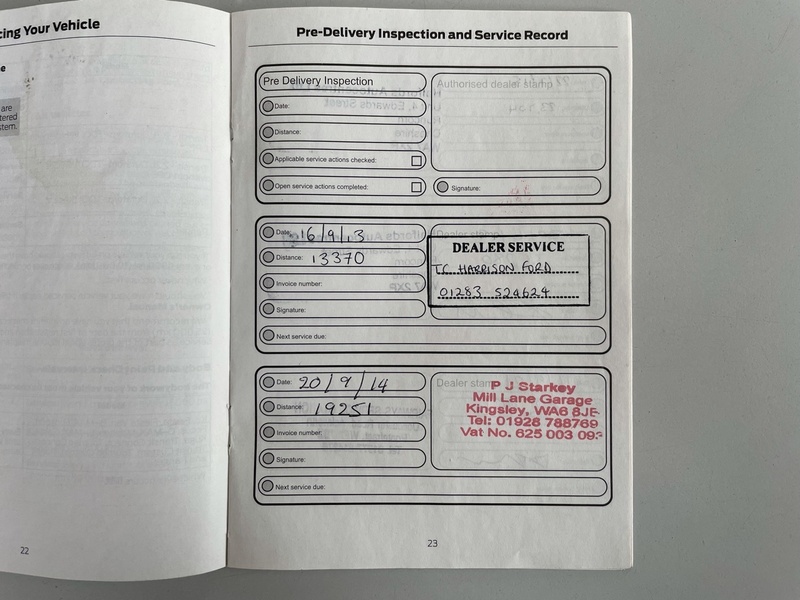 cing Your Vehicle
e
are
tered
stem.
22
Pre-Delivery Inspection and Service Record
Pre Delivery Inspection
Date:
Distance:
Applicable service actions checked:
Open service actions completed:
Authorised dealer stamp
Signature:
Date: 16/9/13
Distance: 13370
Invoice number:
Signature:
Next service due:
Dealer stamp
DEALER SERVICE
T.C. HARRISON FORD
01283 524624
Date: 20/9/14
Distance: 19251
Invoice number:
Signature:
Next service due:
Dealer stam
P J Starkey
Mill Lane Garage
Kingsley, WA6 8JE
Tel: 01928 788769
Vat No. 625 003 09
23